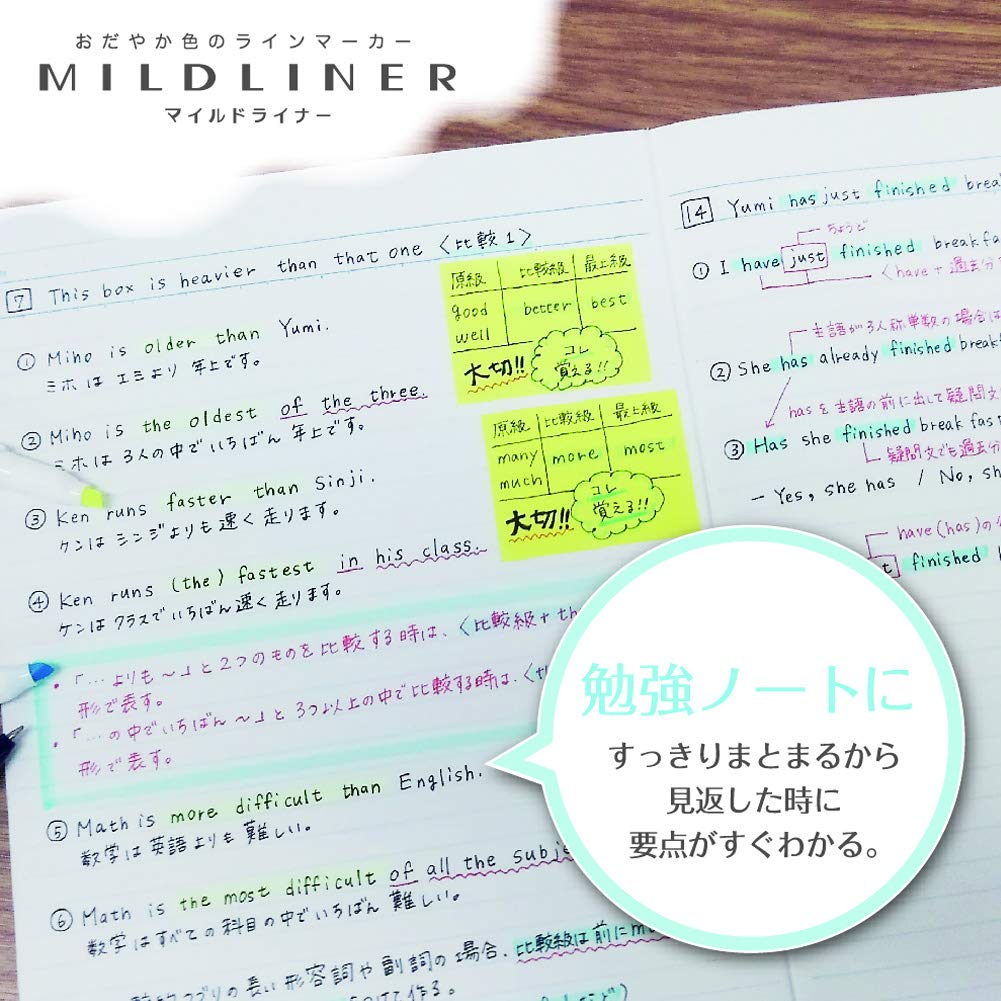 おだやか色のラインマーカー
MILDLINER
マイルドライナー
7 This box is heavier than that one 〈比較1〉
① Miho is older than Yumi.
ミホは エミより 年上です。
② Miho is the oldest of the three.
ミホは 3人の中でいちばん 年上です。
③ Ken runs faster than Sinji.
ケンは シンジよりも 速く 走ります。
④ Ken runs (the) fastest in his class.
ケンは クラスでいちばん 速く 走ります。
・「…よりも～」と 2つのものを 比較する時は、〈比較級+th
形で表す。
・「…の中でいちばん～」と 3つ以上の中で比較する時は、〈t
形で表す。
⑤ Math is more difficult than English.
数学は 英語よりも 難しい。
⑥ Math is the most difficult of all the subje
数学はすべての 科目の中でいちばん 難しい。
の長い形容詞や副詞の場合、比較級は前にm
つけて作る。
原級 比較級 最上級
good better best
well
大切!! コレ
覚える!!
原級 比較級 最上級
many more most
much
大切!! コレ
覚える!!
14 Yumi has just finished brea
ちょうど
① I have just finished breakfa
〈have + 過去分
主語が3人称単数の場合は
② She has already finished break
hasを主語の前に出して疑問文
③ Has she finished breakfas
疑問文でも過去分
– Yes, she has / No, sh
have(has)の
t finished
勉強ノートに
すっきりまとまるから
見返した時に
要点がすぐわかる。